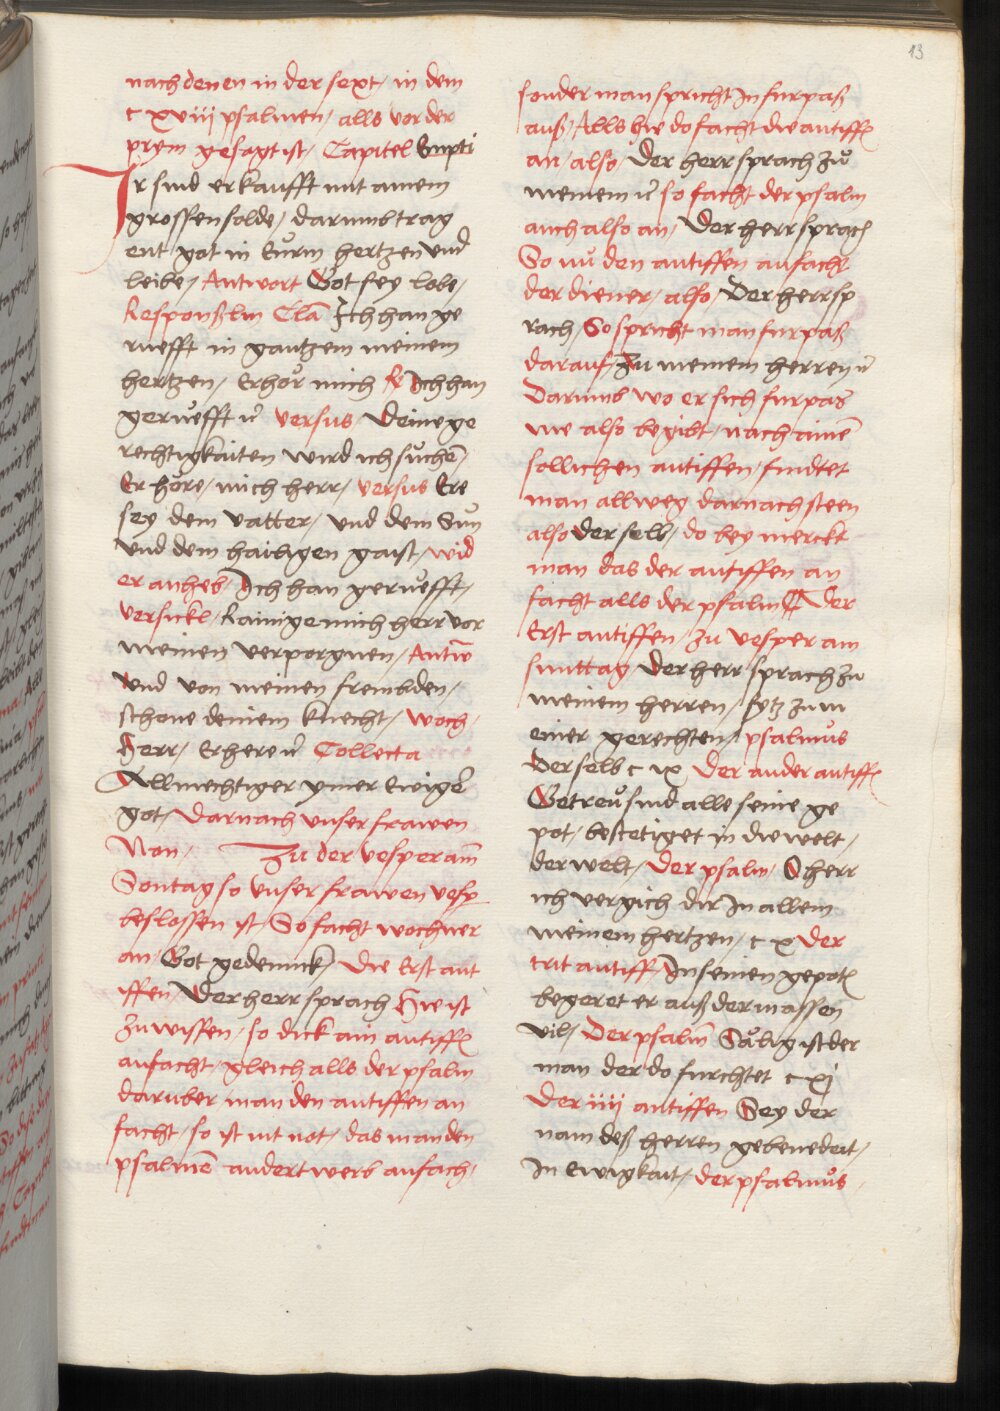 13
nach denen in der sext / in dem
c xviij psalmen / alls vor der
prym gesagt ist / Capitel Empti
Ir sind erkaufft mit ainem
grossen solde / darumb trag
ent got in Eurm hertzen vnd
leibe / Antwort Got sey lobe /
Responß Im Clā Ich han ge
ruefft in gantzem meinem
hertzen / Erhör mich R Ich han
geruefft vͦ versus Deine ge
rechtigkaiten wird ich suchē /
Er höre / mich herr / versus Ere
sey dem vatter / vnd dem Sun
vnd dem hailigen gaist / wid
er anheb / Ich han geruefft /
versickl / Rainige mich herr vor
meinen verporgnen / Antw̄
Vnd von meinen frembden /
schone deinem knecht / woch /
Herr / Erhere vͦ Collecta
Allmechtiger ymer Ewiger
got / Darnach vnser frawen
Non / Zu der vesper am̄
Sontag so vnser frawen vesp
beslossen ist / So facht wochner
an / Got gedennck / Die Erst ant
iffen / Der herr sprach Hie ist
zu wissen / so dick ain antiffe
anfacht / gleich alls der psalm
daruber / man den antiffen an
facht / so ist nit not / das man den
psalmē andertwerb anfach /
sonder man spricht In furpaß
auß / Alls hie do facht die antiffe
an / also / Der herr sprach zu
meinem vͦ so facht der psalm
auch also an / Der herr sprach
So nu den antiffen anfacht
der diener / also / Der herr sp
rach / So spricht man furpaß
darauf / Zu meinem herren vͦ
Darumb wo er sich furpas
me also begibt / nach ainē
sollichen antiffen / findtet
man allweg darnach steen
also der selb / do bey merckt
man das der antiffen an
facht alls der psalm ¶ Der
Erst antiffen / zu vesper am
sunttag / Der herr sprach zu
meinem herren / sytz zu m
einer gerechten / psalmus
Der selb c ix Der ander antiffe
Getreu sind alle seine ge
pot / bestetiget in die welt /
der welt / Der psalm / O herr
ich vergich dir In allem
meinem hertzen / c x Der
trit antiff / In seinen gepotē
begeret er auß dermassen
vil / Der psalm̄ Sälig ist der
man der do furchtet c xj
Der iiij antiffen Sey der
nam deß herren gebenedeit /
In Ewigkait / der psalmus